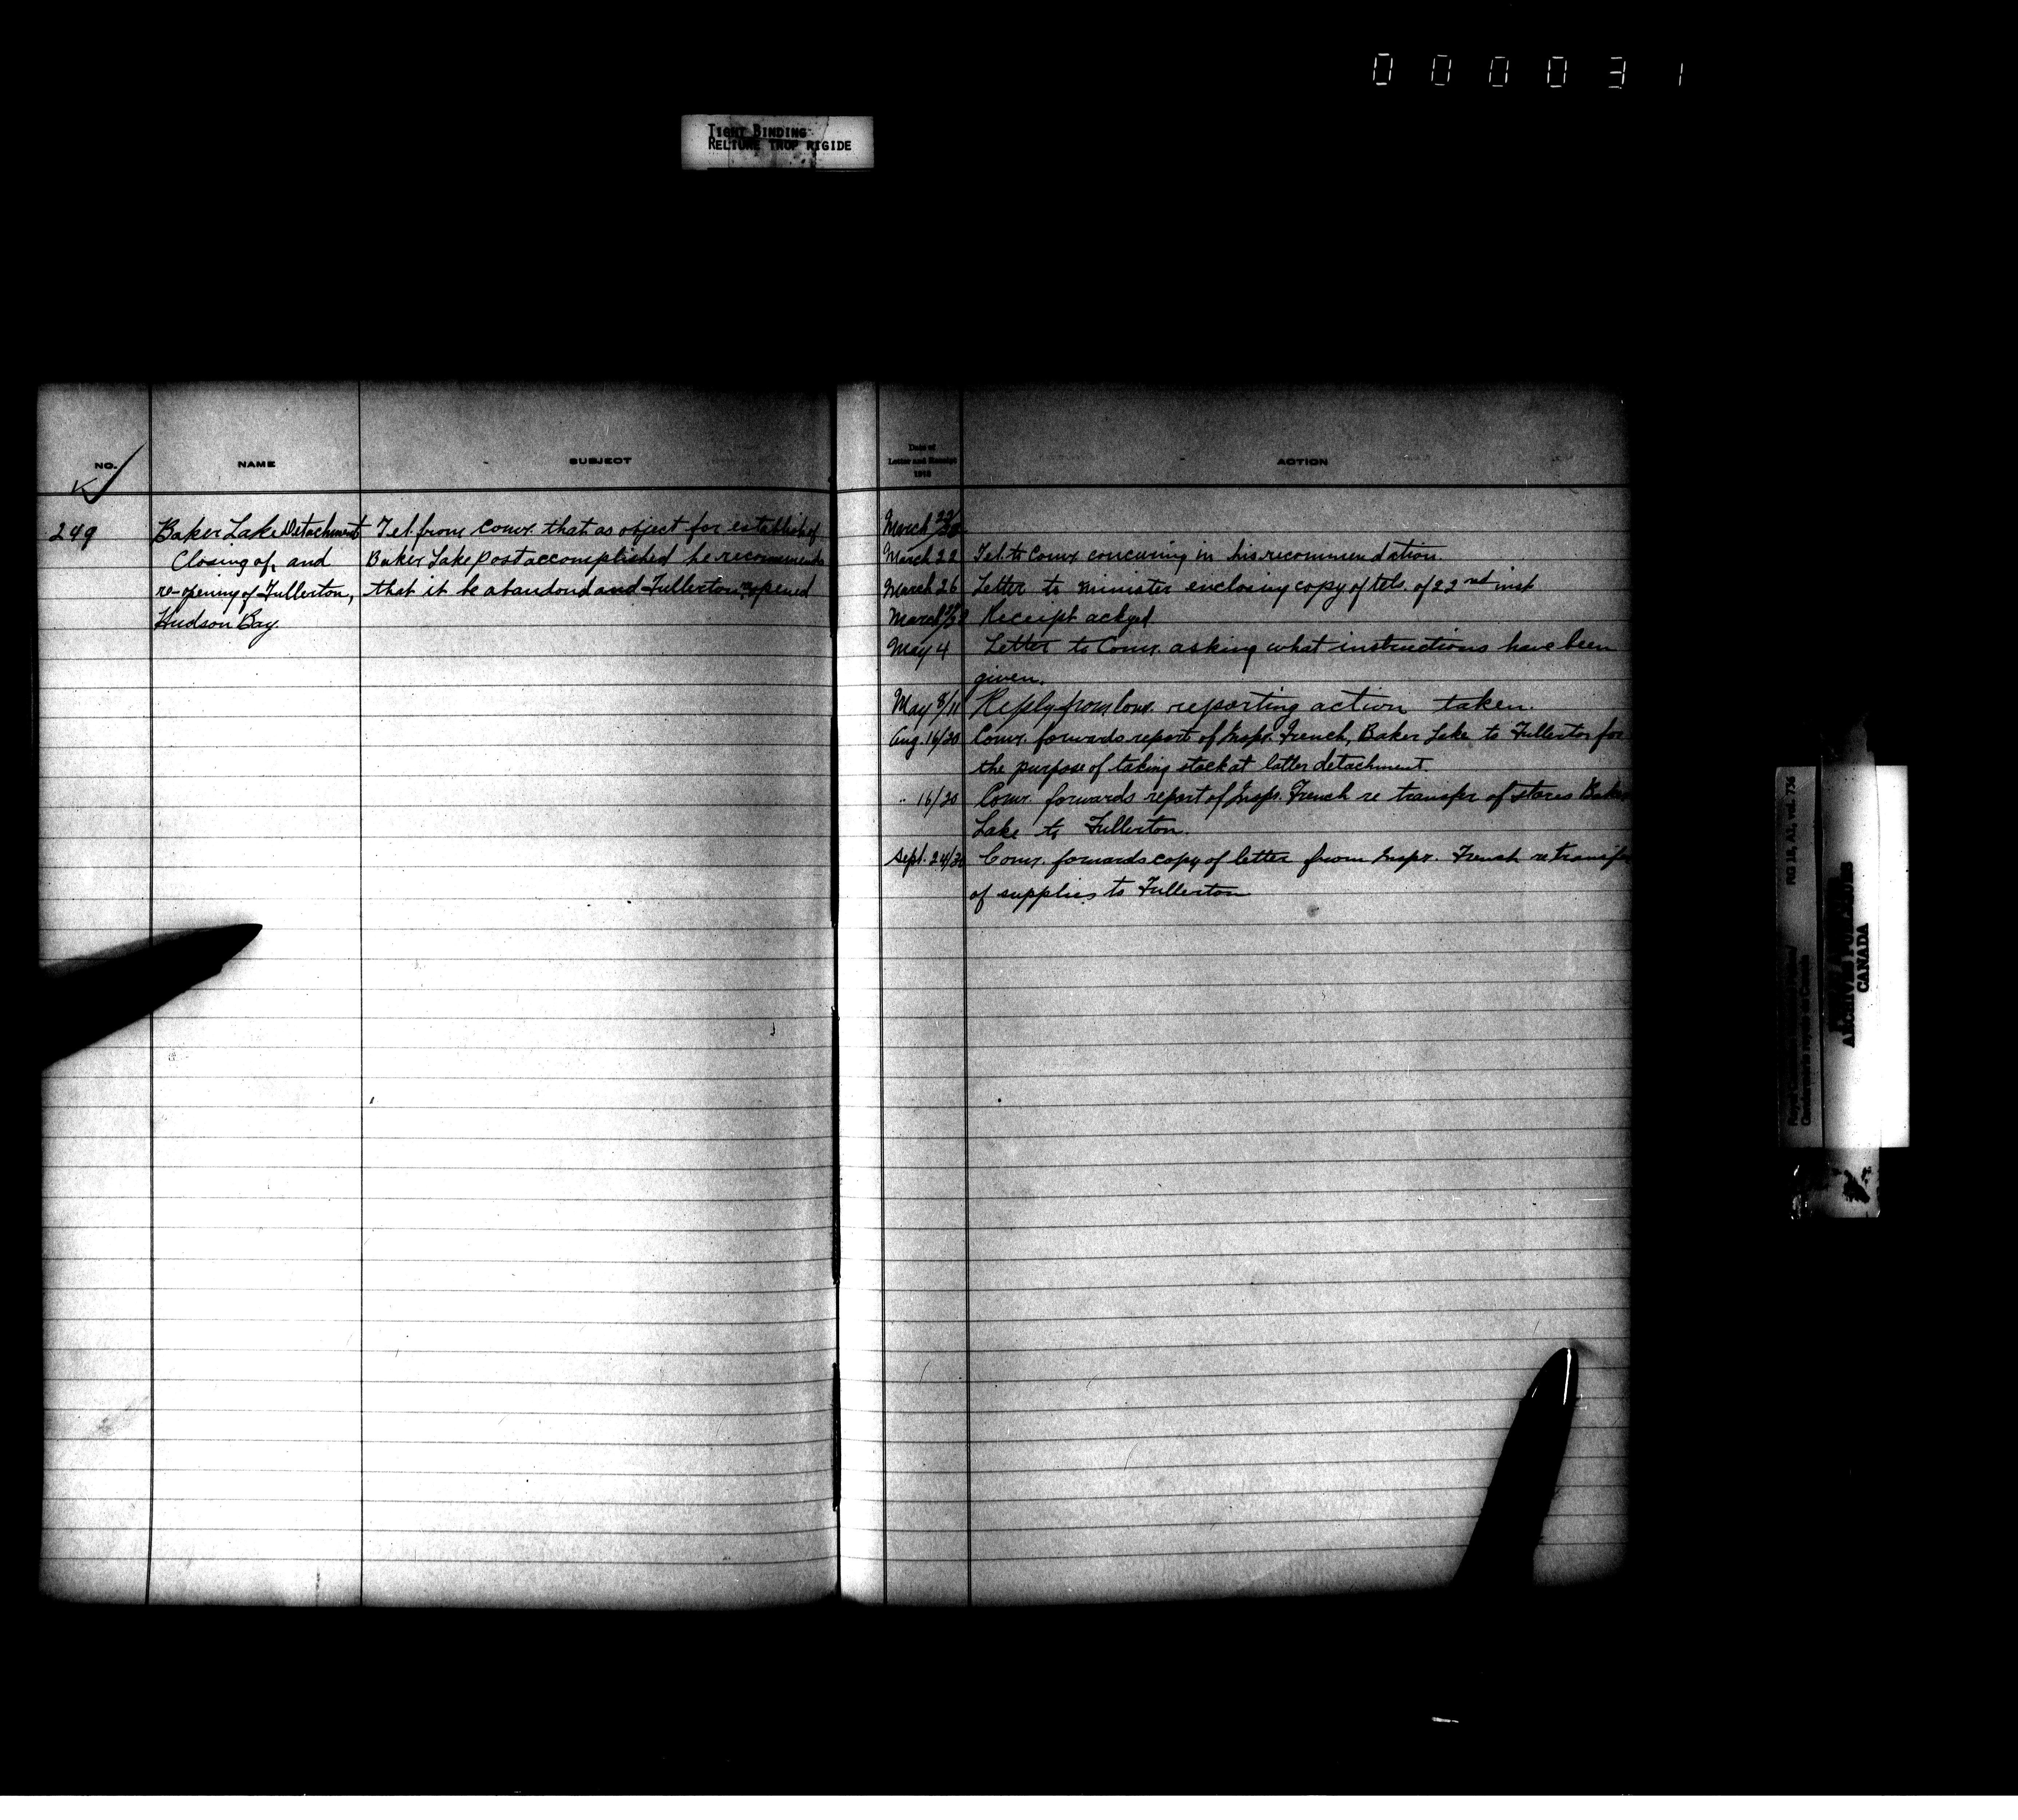 0 0 0 0 3 1
TIGHT BINDING
RELIURE TROP RIGIDE
NO.
NAME
SUBJECT
249
Baker Lake Detachment
Closing of, and
re-opening of Fullerton,
Hudson Bay.
Tel. from Comr. that as object for establish of
Baker Lake post accomplished he recommends
that it be abandond and Fullerton reopened
Date of
Letter and Receipt
1918
ACTION
March 22/22
March 22 Tel. to Comr concurring in his recommendation
March 26 Letter to Minister enclosing copy of tels. of 22nd inst
March Receipt ackgd
May 4 Letter to Comr. asking what instructions have been
given.
May 8/11 Reply from Comr. reporting action taken.
Aug. 16/20 Comr. forwards report of Inspr. French, Baker Lake to Fullerton for
the purpose of taking stock at latter detachment.
" 16/20 Comr. forwards report of Inspr. French re transfer of stores Baker
Lake to Fullerton.
Sept. 24/30 Comr. forwards copy of letter from Inspr. French re transfer
of supplies to Fullerton
RG 18, A2, vol. 736
Gendarmerie royale du Canada
ARCHIVES PUBLIQUES
CANADA